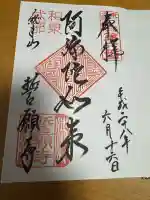 奉拝
平成二八年
六月十六日
阿弥陀如来
和泉
式部
総本山
誓願寺